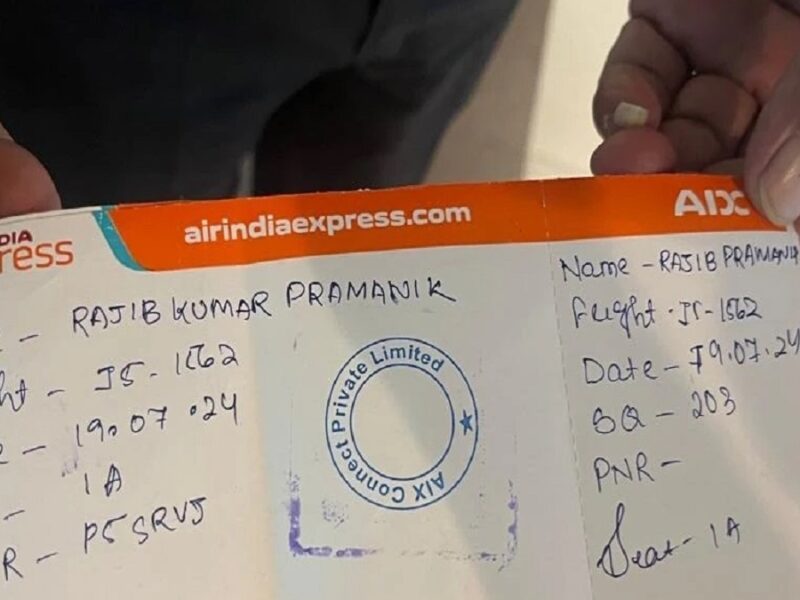 DIA
ress
airindiaexpress.com
AIX
- RAJIB KUMAR PRAMANIK
ht - I5-1562
- 19.07.24
- 1A
R - P5SRVJ
AIX Connect Private Limited
Name - RAJIB PRAMANIK
Flight - I5-1562
Date - 19.07.24
SQ - 203
PNR -
Seat - 1A